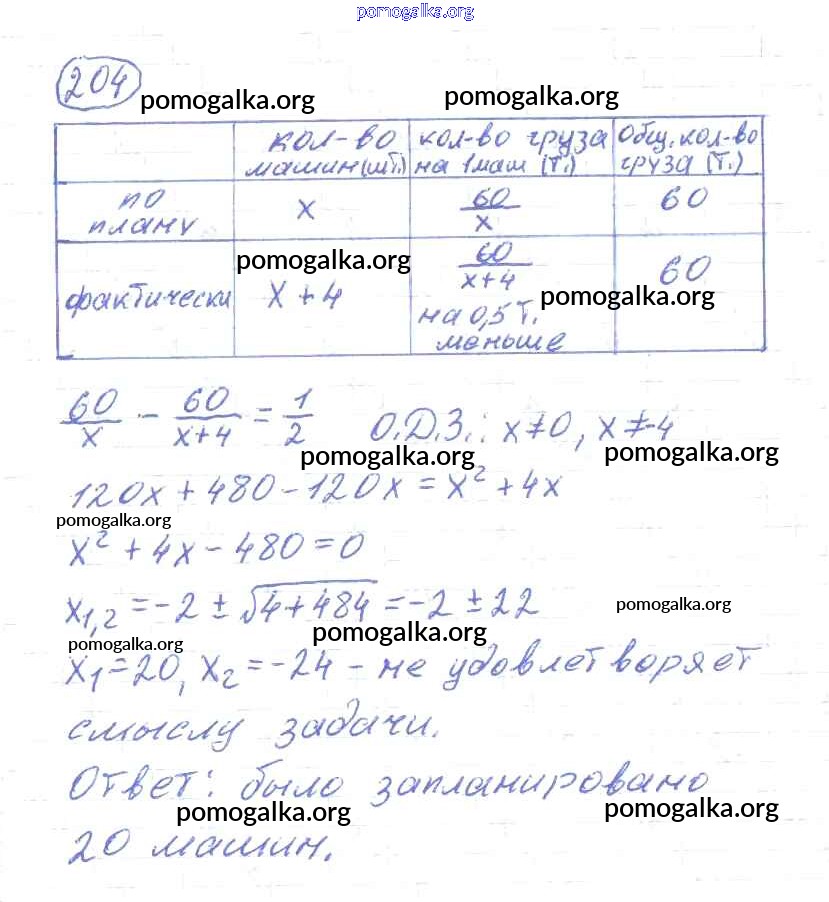 pomogalka.org
204
pomogalka.org pomogalka.org
кол-во машин (шт.) кол-во груза на 1 маш (т.) Общ. кол-во груза (т.)
по плану x 60/x 60
pomogalka.org
фактически x+4 60/(x+4) на 0,5 т. меньше 60
pomogalka.org
60/x - 60/(x+4) = 1/2 О.Д.З.: x≠0, x≠-4
pomogalka.org pomogalka.org
120x + 480 - 120x = x² + 4x
pomogalka.org
x² + 4x - 480 = 0
x₁,₂ = -2 ± √4+484 = -2 ± 22
pomogalka.org
pomogalka.org pomogalka.org
x₁=20, x₂=-24 - не удовлетворяет
смыслу задачи.
Ответ: было запланировано
pomogalka.org pomogalka.org
20 машин.